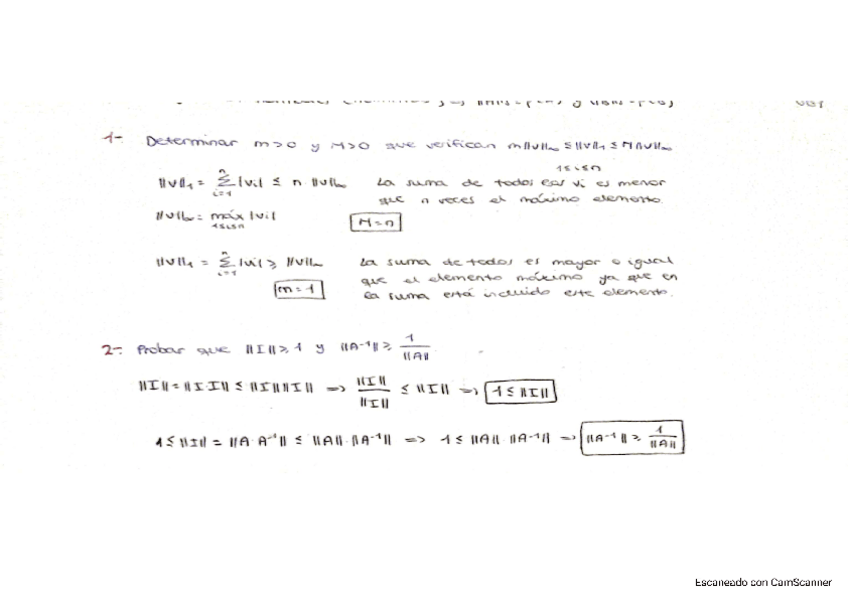 1- Determinar m>0 y M>0 que verifican m||v||∞ ≤ ||v||₁ ≤ M||v||∞
1≤i≤n
||v||₁ = Σ_{i=1}^{n} |vi| ≤ n ||v||∞ La suma de todos los vi es menor
que n veces el máximo elemento.
||v||∞ = máx_{1≤i≤n} |vi| M=n
||v||₁ = Σ_{i=1}^{n} |vi| ≥ ||v||∞ La suma de todos es mayor o igual
que el elemento máximo ya que en
m=1 la suma está incluido este elemento.
2-. Probar que ||I|| ≥ 1 y ||A⁻¹|| ≥ 1/||A||
||I|| = ||I·I|| ≤ ||I|| ||I|| => ||I||/||I|| ≤ ||I|| => 1 ≤ ||I||
1 ≤ ||I|| = ||A·A⁻¹|| ≤ ||A||·||A⁻¹|| => 1 ≤ ||A|| ||A⁻¹|| => ||A⁻¹|| ≥ 1/||A||
Escaneado con CamScanner